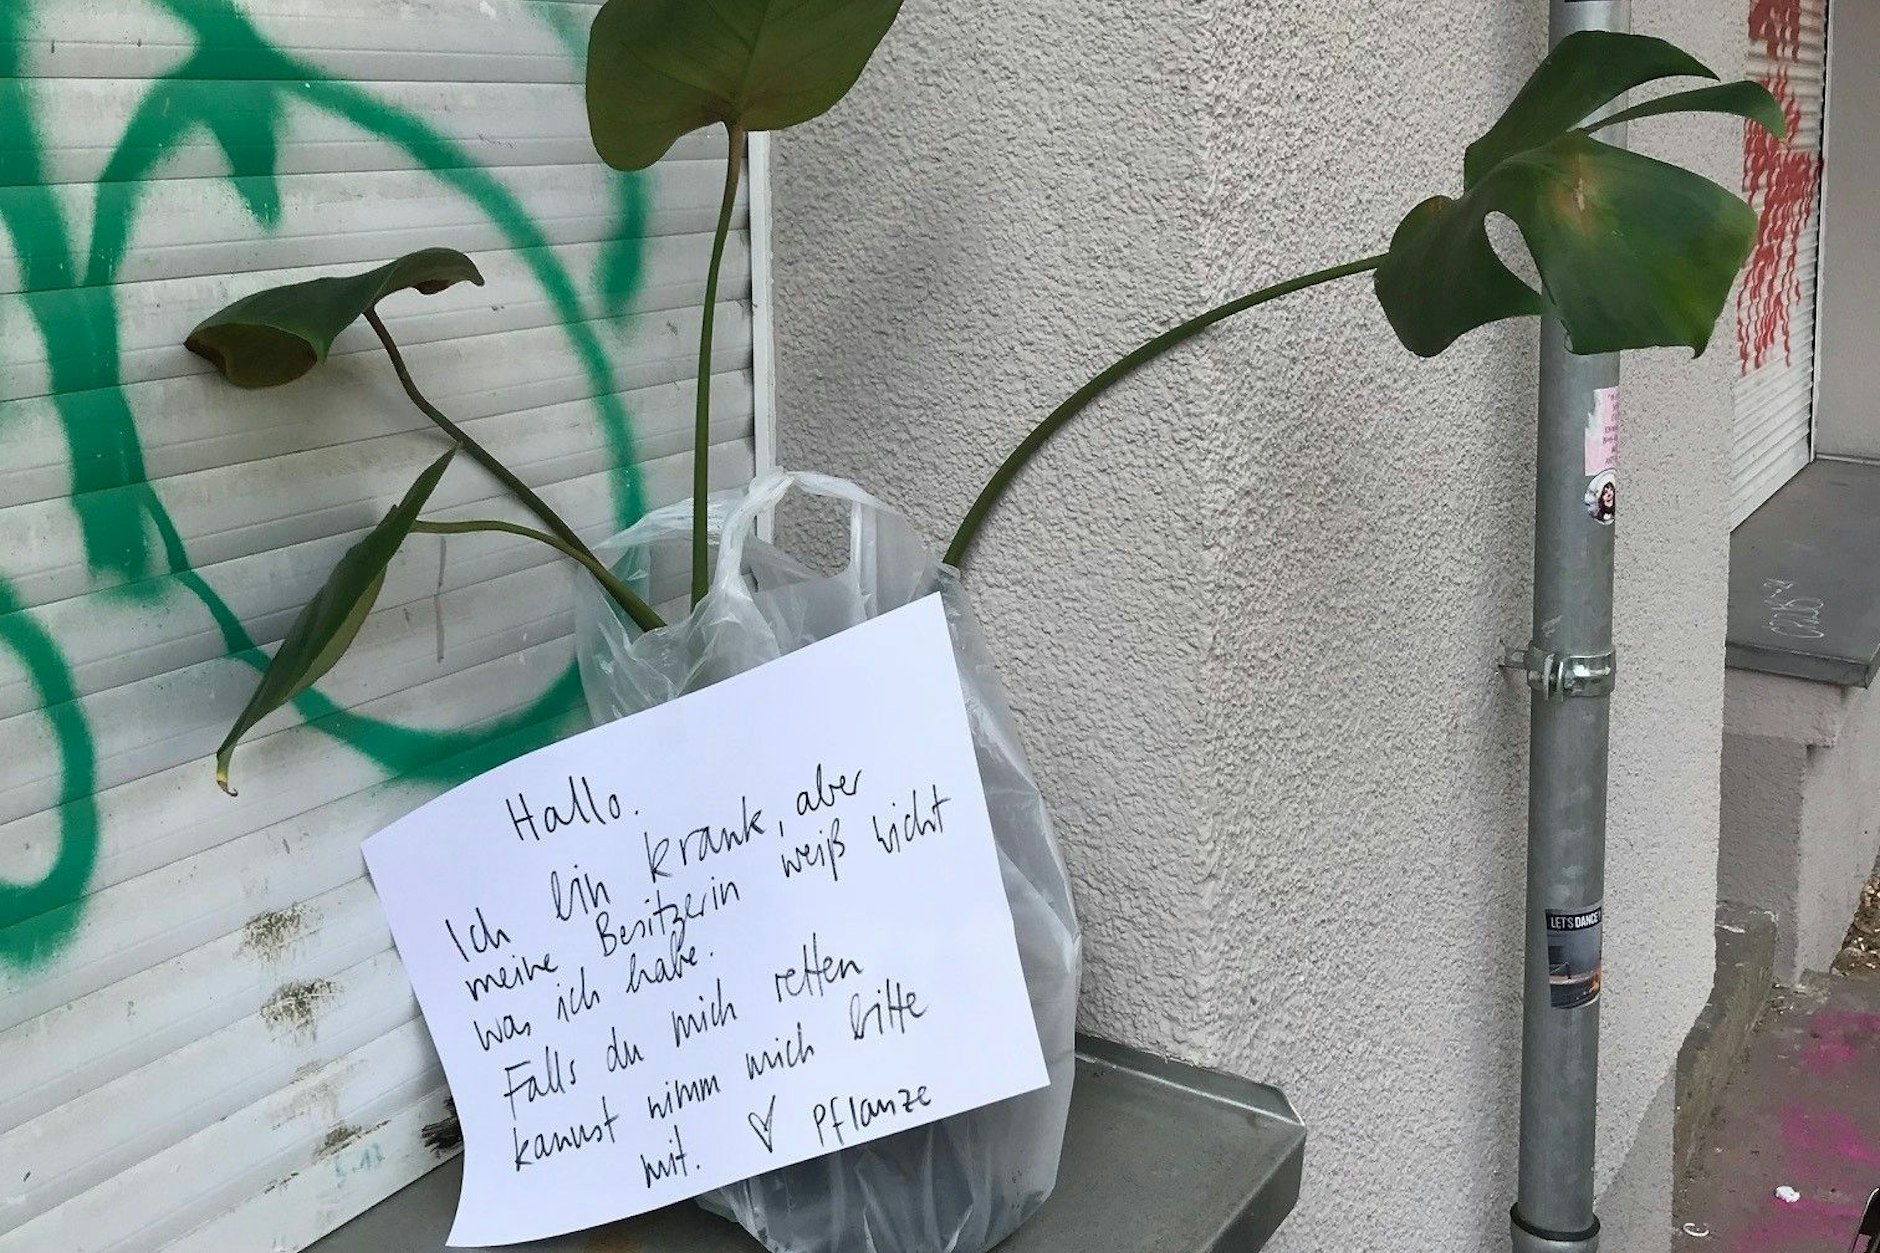 Hallo.
Ich bin krank, aber
meine Besitzerin weiß nicht
was ich habe.
Falls du mich retten
kannst nimm mich bitte
mit. ♡ Pflanze
LET'S DANCE